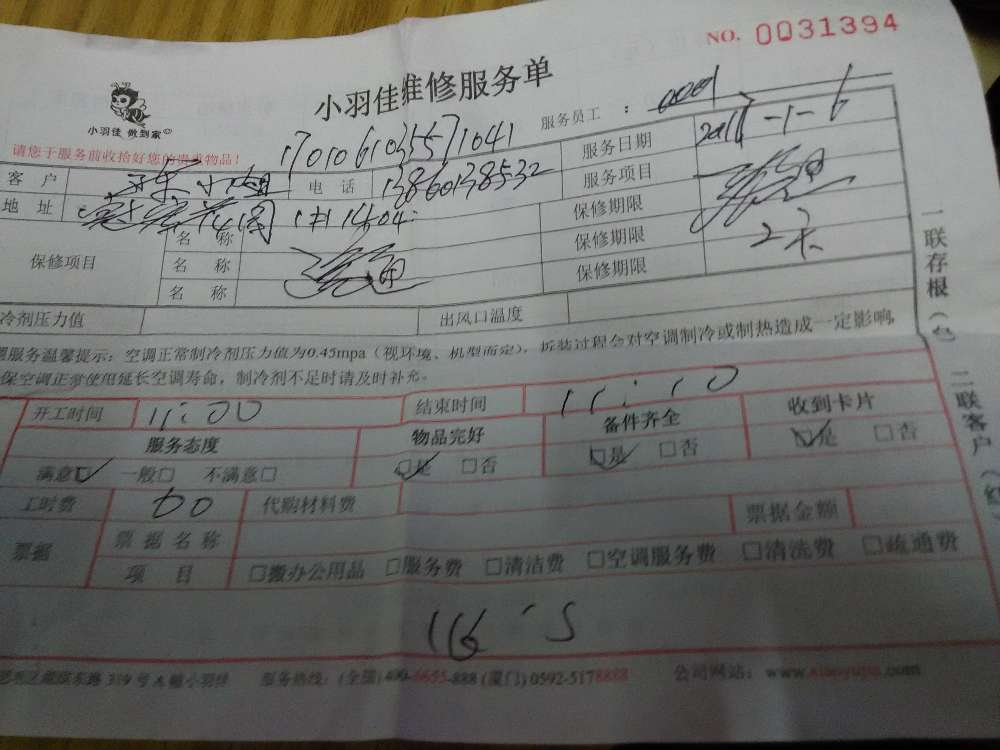 NO. 0031394
小羽佳维修服务单
小羽佳 做到家
服务员工 ：
请您于服务前收拾好您的贵重物品！
1701061035571041
服务日期 -1-6
客户 小姐 电话 13860138532 服务项目
地址 花园 1#1404 保修期限
保修项目 名称 保修期限 2天
名称 保修期限
名称
冷剂压力值 出风口温度
服务温馨提示：空调正常制冷剂压力值为0.45mpa（视环境、机型而定），拆装过程会对空调制冷或制热造成一定影响，
保空调正常使用延长空调寿命，制冷剂不足时请及时补充。
开工时间 11:00 结束时间 11:10
服务态度 物品完好 备件齐全 收到卡片
满意□ 一般□ 不满意□ □是 □否 □是 □否 □是 □否
工时费 代购材料费
票据 票据名称 票据金额
项目 □搬办公用品 □服务费 □清洁费 □空调服务费 □清洗费 □疏通费
339号A幢小羽佳 服务热线：(全国) 400-6655-888 (厦门) 0592-5178888 公司网站：www.xiaoyujia.com
一联存根（
二联客户（